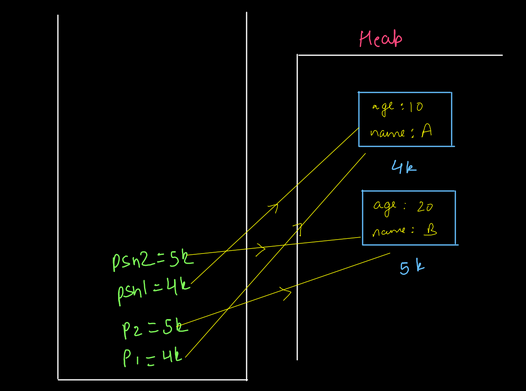 Heap
age : 10
name : A
4k
age : 20
name : B
5k
psn2 = 5k
psn1 = 4k
P2 = 5k
P1 = 4k